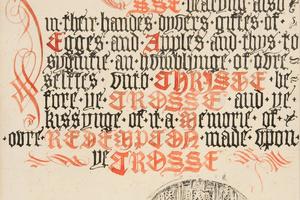 SSE bearyng also
in their handes dyvers giftes of
Egges · and · Apples · and · thus · to
sygnifie · an · hombly
selfes · vnto · CHRISTE · be
fore · ye · CROSSE · and · ye ·
kissynge · of · it · a · Memorie · of ·
· ovre · REDEMPTON · made · vpone
ye CROSSE